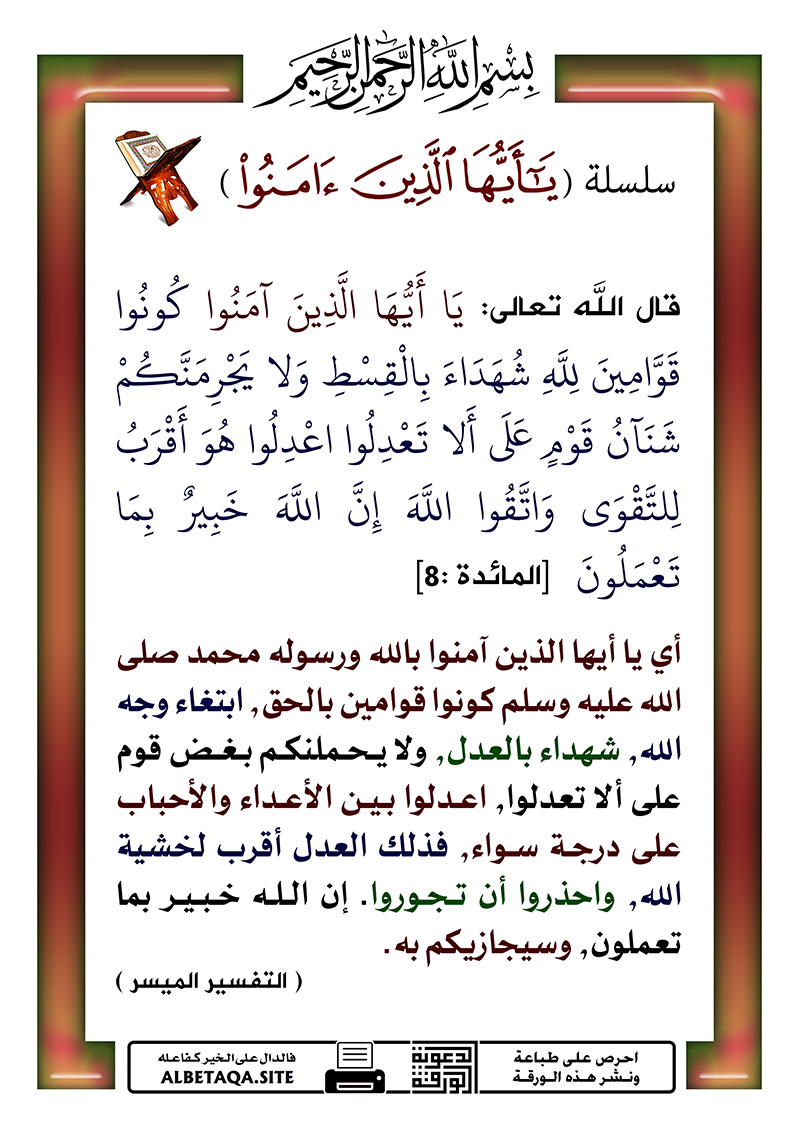 بِسْمِ اللَّهِ الرَّحْمَنِ الرَّحِيمِ
سلسلة (يَٰٓأَيُّهَا ٱلَّذِينَ ءَامَنُوا۟)
قال اللَّه تعالى: يَا أَيُّهَا الَّذِينَ آمَنُوا كُونُوا
قَوَّامِينَ لِلَّهِ شُهَدَاءَ بِالْقِسْطِ وَلا يَجْرِمَنَّكُمْ
شَنَآنُ قَوْمٍ عَلَى أَلا تَعْدِلُوا اعْدِلُوا هُوَ أَقْرَبُ
لِلتَّقْوَى وَاتَّقُوا اللَّهَ إِنَّ اللَّهَ خَبِيرٌ بِمَا
تَعْمَلُونَ [المائدة :8]
أي يا أيها الذين آمنوا بالله ورسوله محمد صلى
الله عليه وسلم كونوا قوامين بالحق, ابتغاء وجه
الله, شهداء بالعدل, ولا يحملنكم بغض قوم
على ألا تعدلوا, اعدلوا بين الأعداء والأحباب
على درجة سواء, فذلك العدل أقرب لخشية
الله, واحذروا أن تجوروا. إن الله خبير بما
تعملون, وسيجازيكم به.
( التفسير الميسر )
احرص على طباعة
ونشر هذه الورقة
الورقة
الدعوية
فالدال على الخير كفاعله
ALBETAQA.SITE